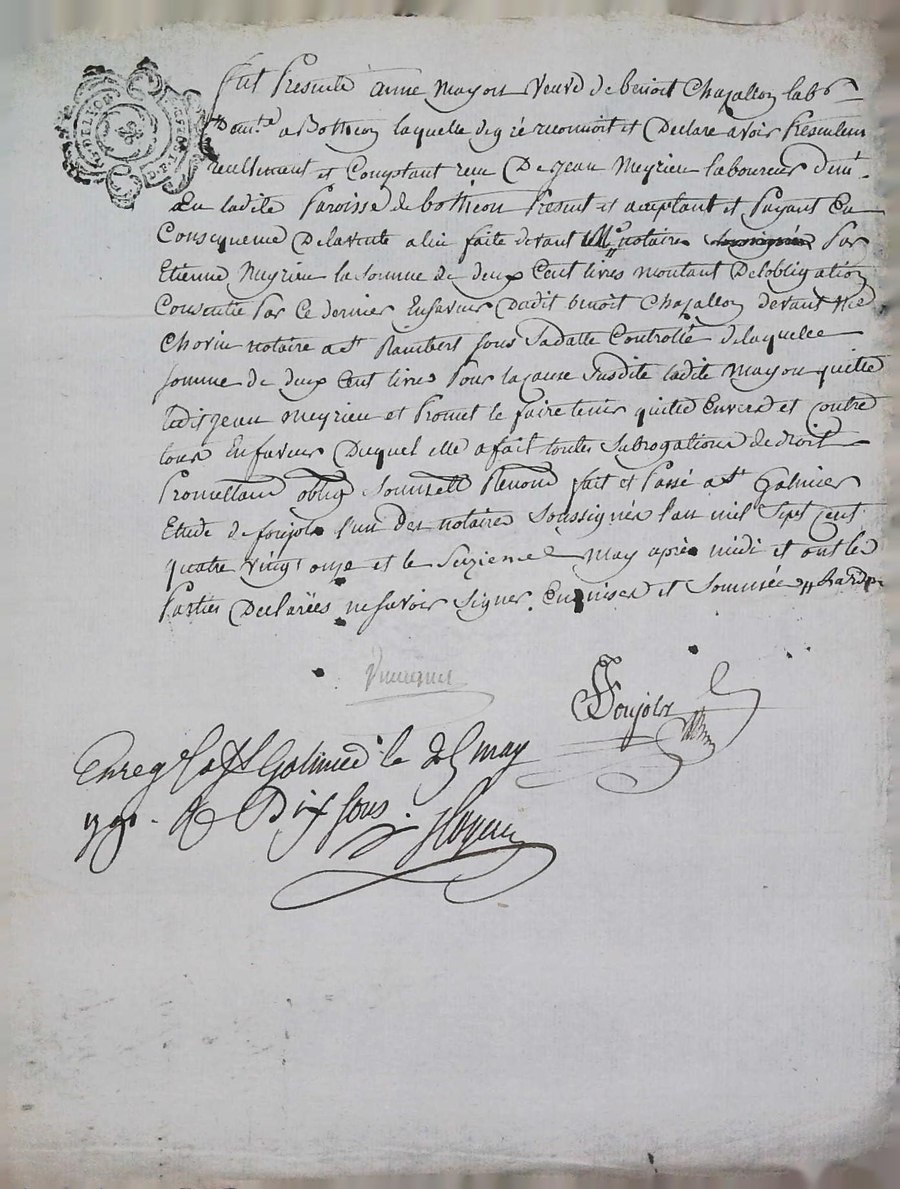 G. DE LYON
D.P. 1S
fut Presente anne mayou veuve de benoit Chazallon lab.r
Dem.te a Botheon laquelle de gré reconnoit et Declare avoir Presentem
reellement et Comptant recu De jean Meyrieu laboureur dem.t
En ladite Paroisse de botheon Present et aceptant et Payant En
Consequence De la vente a lui faite devant notaire Par
Etienne Meyrieu la Somme de deux Cent livres montant De lobligation
Consentie Par Ce dernier Enfaveur Dudit benoit Chazallon devant Me
Chorin notaire a st Rambert Sous Sa datte Controllé de laquelle
Somme de deux Cent livres Pour la Cause Susdite ladite mayou quitte
ledit jean Meyrieu et Promet le faire tenir quitte Envers et Contre
tous Enfaveur Duquel elle a fait toutes Subrogations de droit
Promettant oblig Soumett Renon fait et Passé a st Galmier
Etude de foujols l'un Des notaires Soussignés l'an mil Sept Cent
quatre vingt onze et le Seizieme may après midi et ont les
Parties Declarées ne Savoir Signer. Enquises et Sommées
Foujols
Enreg a st Galmier le 25 may
1791. R Dix Sous.